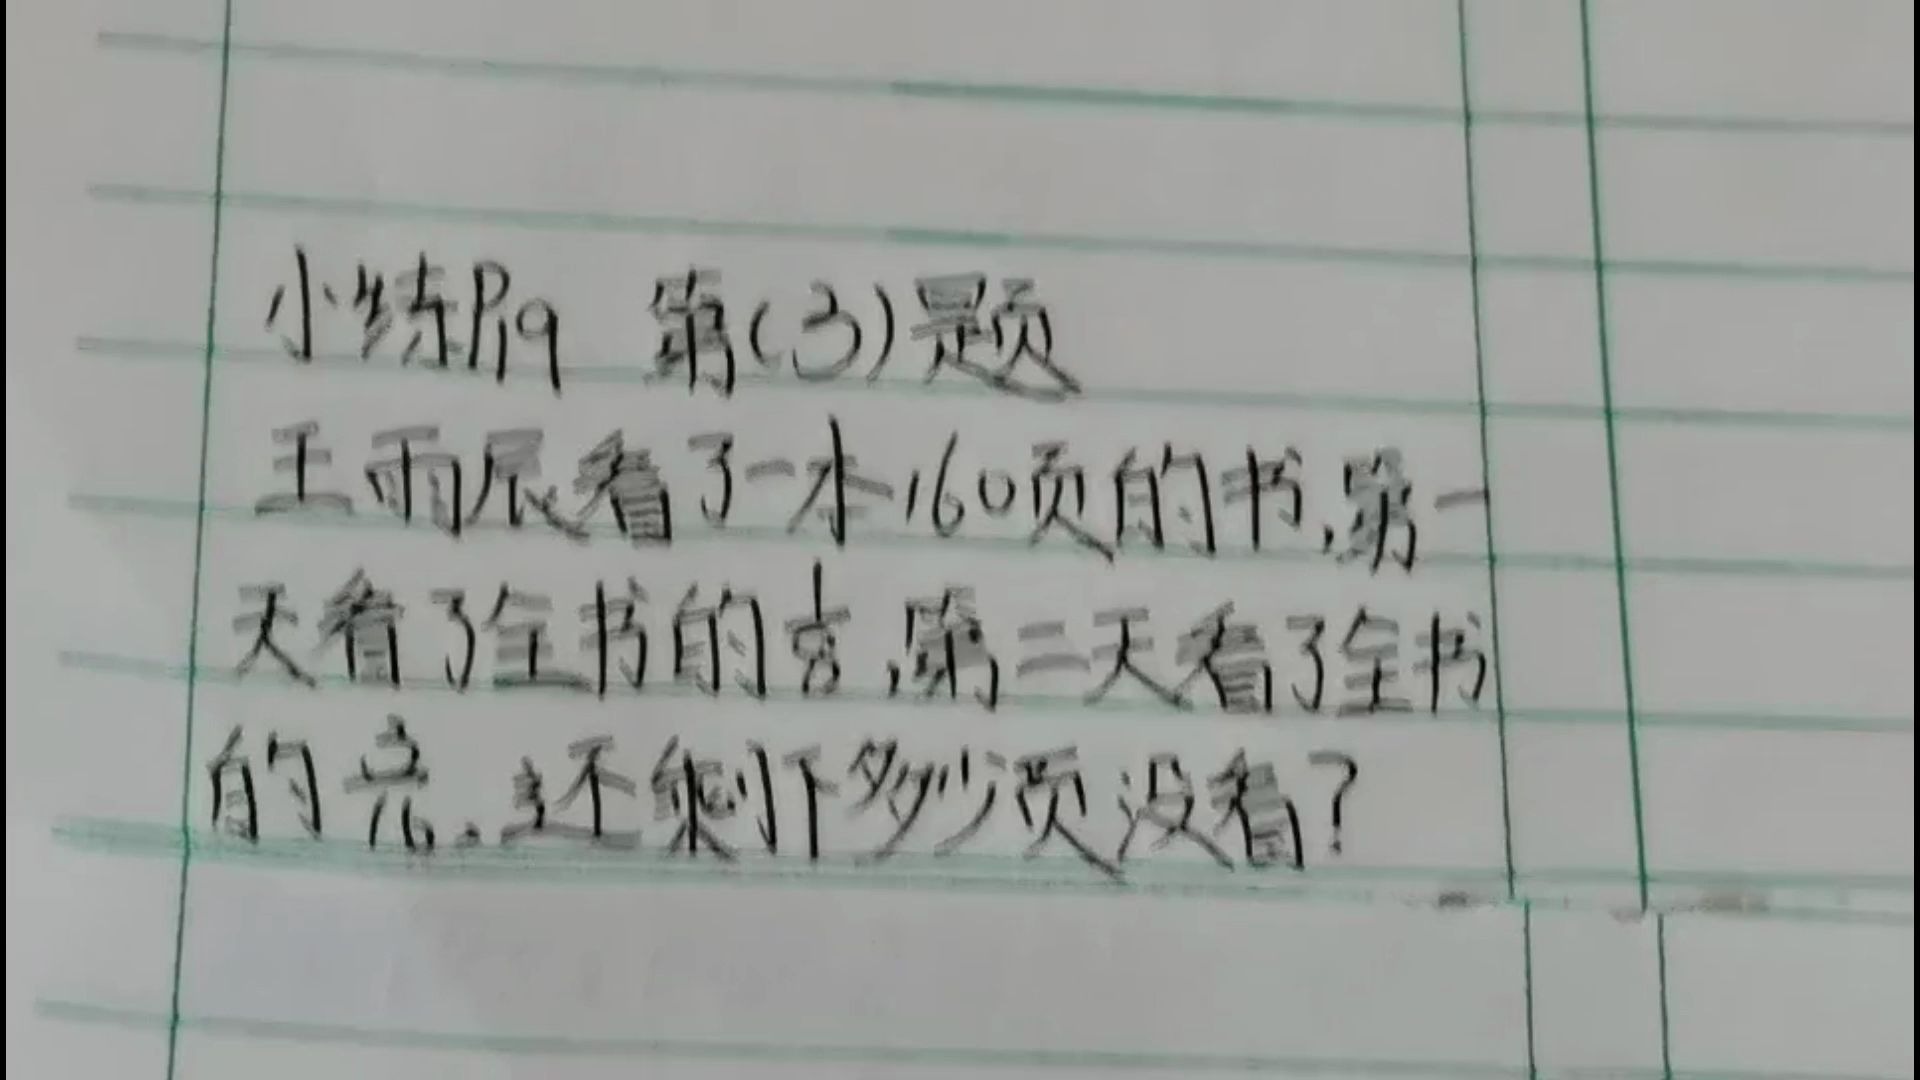 小练P19 第(3)题
王雨辰看了一本160页的书,第一
天看了全书的1/8,第二天看了全书
的3/16.还剩下多少页没看?